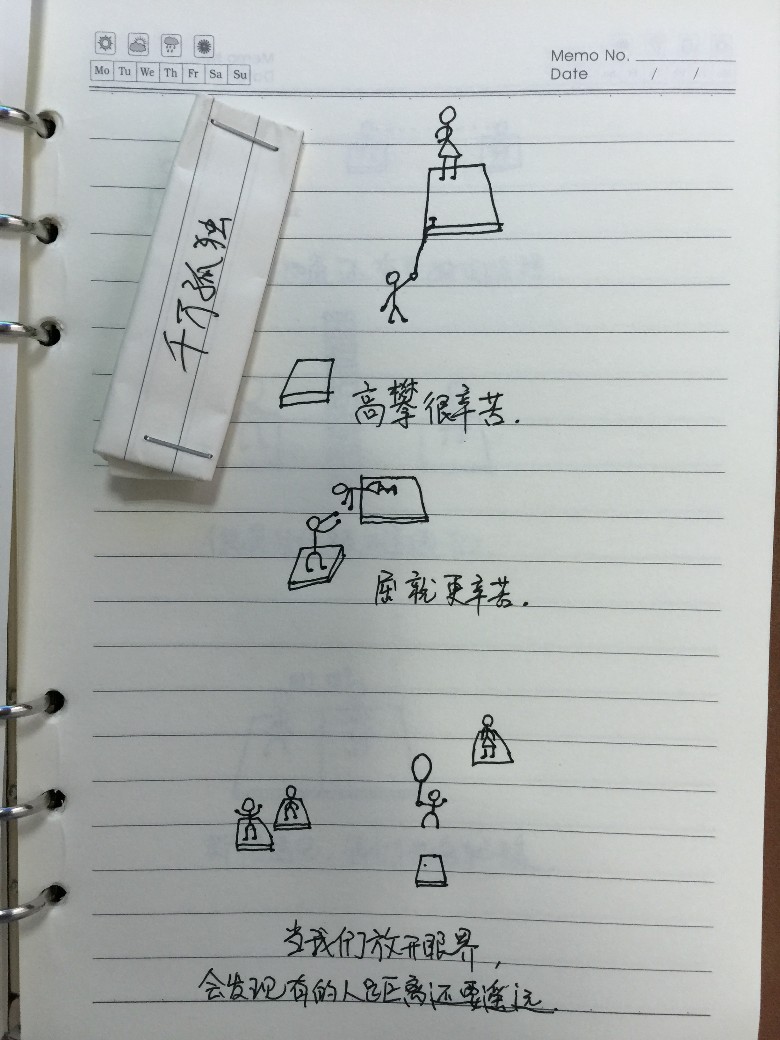 Memo No.
Mo Tu We Th Fr Sa Su
Date / /
千万孤独
高攀很辛苦.
屈就更辛苦.
当我们放开眼界,
会发现有的人距离还要遥远.